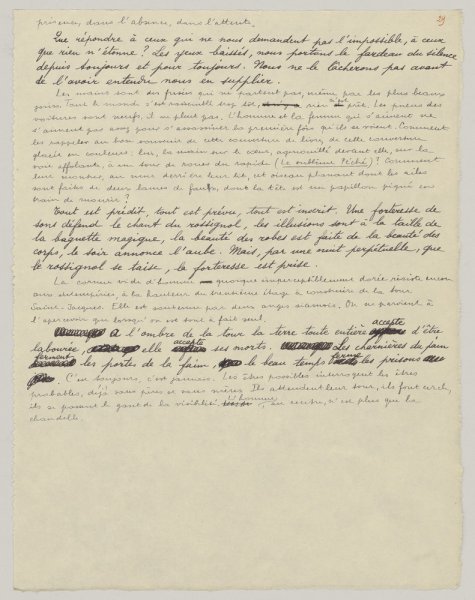 29
précieux, dans l'absence, dans l'attente.
Que répondre à ceux qui ne nous demandent pas l'impossible, à ceux
que rien n'étonne ? Les yeux baissés, nous portons le fardeau du silence
depuis toujours et pour toujours. Nous ne le lâcherons pas avant
de l'avoir entendu nous en supplier.
Les mains sont des fusées qui ne partent pas, même par les plus beaux
jours. Tout le monde s'est rassemblé trop tôt, rien n'est prêt. Les pneus des
voitures sont neufs, il ne pleut pas. L'homme et la femme qui s'aiment ne
s'aiment pas assez pour s'assassiner la première fois qu'ils se voient. Comment
les rappeler au bon souvenir de cette couverture de livre, de cette couverture
glacée en couleurs : lui, la main sur le cœur, agenouillé devant elle, sur la
voie, à un tour de roues du rapide (Le outième Péché) ? Comment
leur montrer, au mur derrière leur lit, cet oiseau planant dont les ailes
sont faites de deux lames de faulx, dont la tête est un papillon piqué en
train de mourir ?
Tout est prédit, tout est prévu, tout est inscrit. Une forteresse de
sons défend le chant du rossignol, les illusions sont à la taille de
la baguette magique, la beauté des robes est faite de la beauté des
corps, le soir annonce l'aube. Mais, par une nuit perpétuelle, que
le rossignol se taise, la forteresse est prise.
La cornue vide d'homme quoique imperceptiblement dorée résiste encore
aux intempéries, à la hauteur du troisième étage à construire de la tour
Saint-Jacques. Elle est soutenue par deux anges siamois. On ne parvient à
l'apercevoir que lorsqu'on est seul à fait seul.
A l'ombre de la tour la terre toute entière accepte d'être
labourée, elle accepte ses morts. Les charnières du pain
ferment les portes de la faim, le beau temps ferme les prisons
C'est toujours, c'est jamais. Les êtres possibles interrogent les êtres
probables, déjà sans pères et sans mères. Ils attendent leur tour, ils font cercle,
ils se passent le gant de la visibilité. L'homme, au centre, n'est plus que la
chandelle.